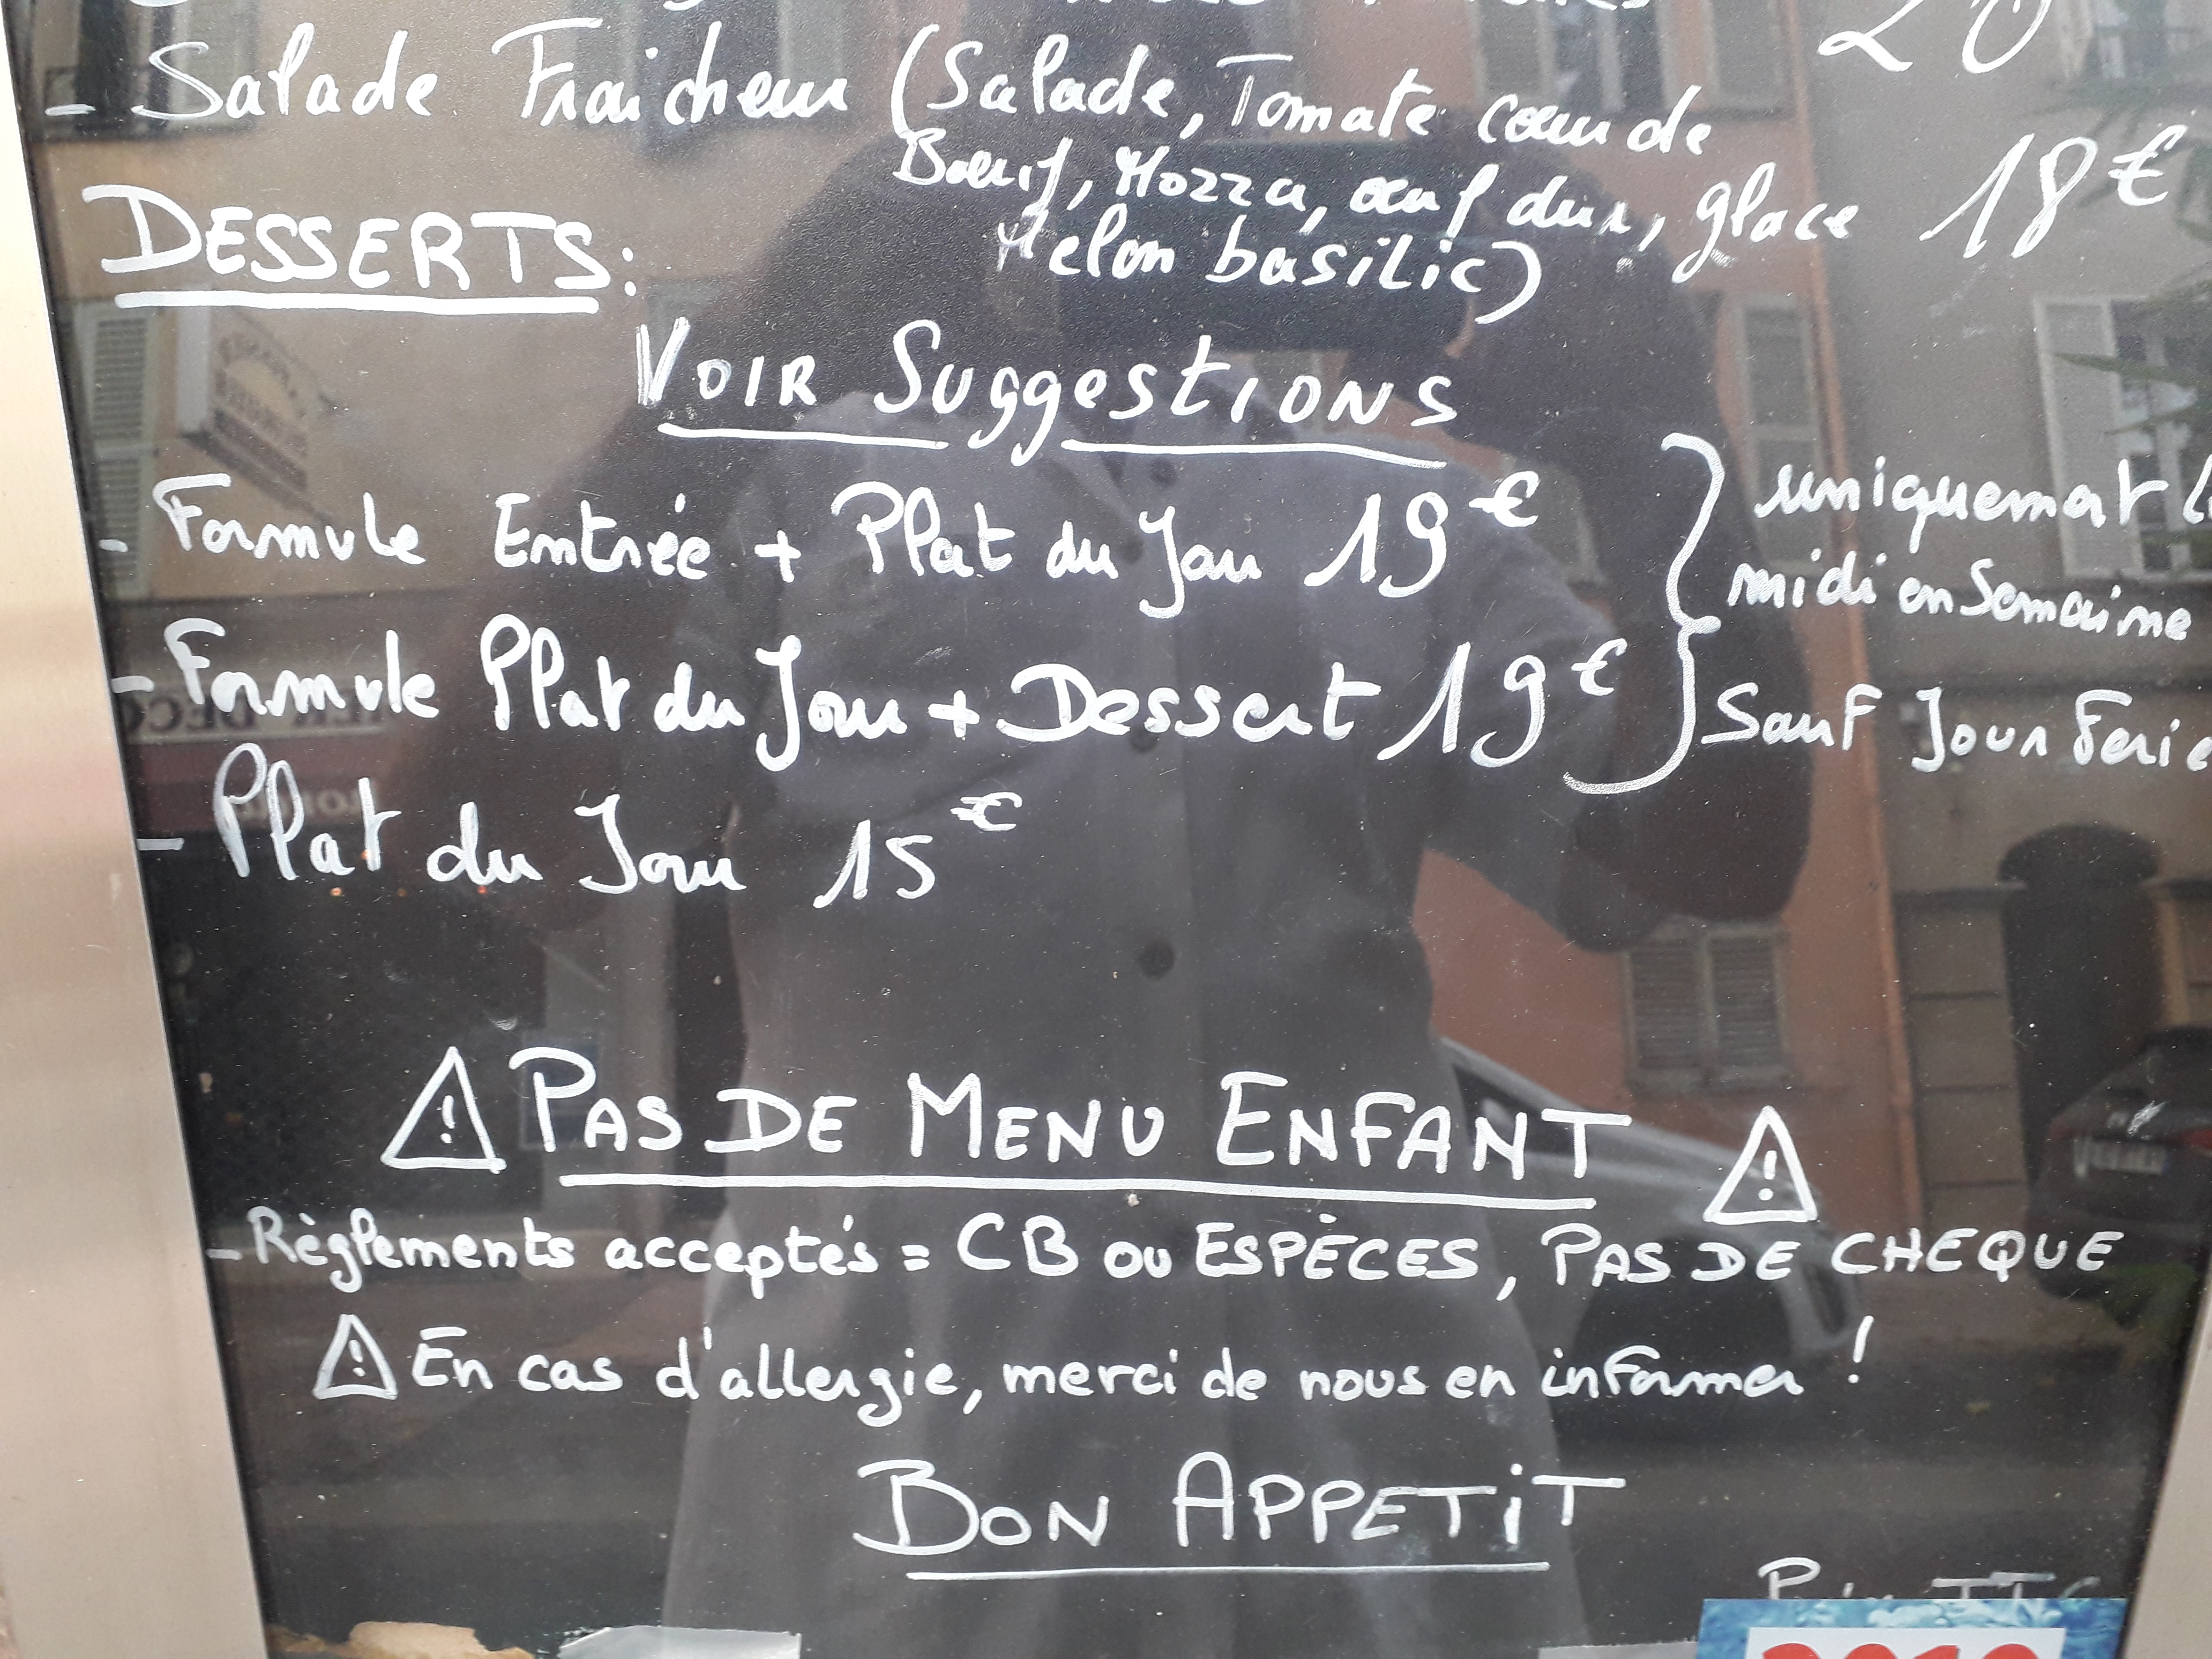 20
- Salade Fraicheur (Salade, Tomate cœur de
Bœuf, Mozza, œuf dur, glace 18€
Melon basilic)
DESSERTS:
VOIR SuggestIONS
- Formule Entrée + Plat du Jour 19€
uniquement
midi en Semaine
- Formule Plat du Jour + Dessert 19€
Sauf Jour Ferie
- Plat du Jour 15€
⚠ PAS DE MENU ENFANT ⚠
- Règlements acceptés = CB ou ESPÈCES, PAS DE CHEQUE
⚠ En cas d'allergie, merci de nous en informer !
BON APPETiT